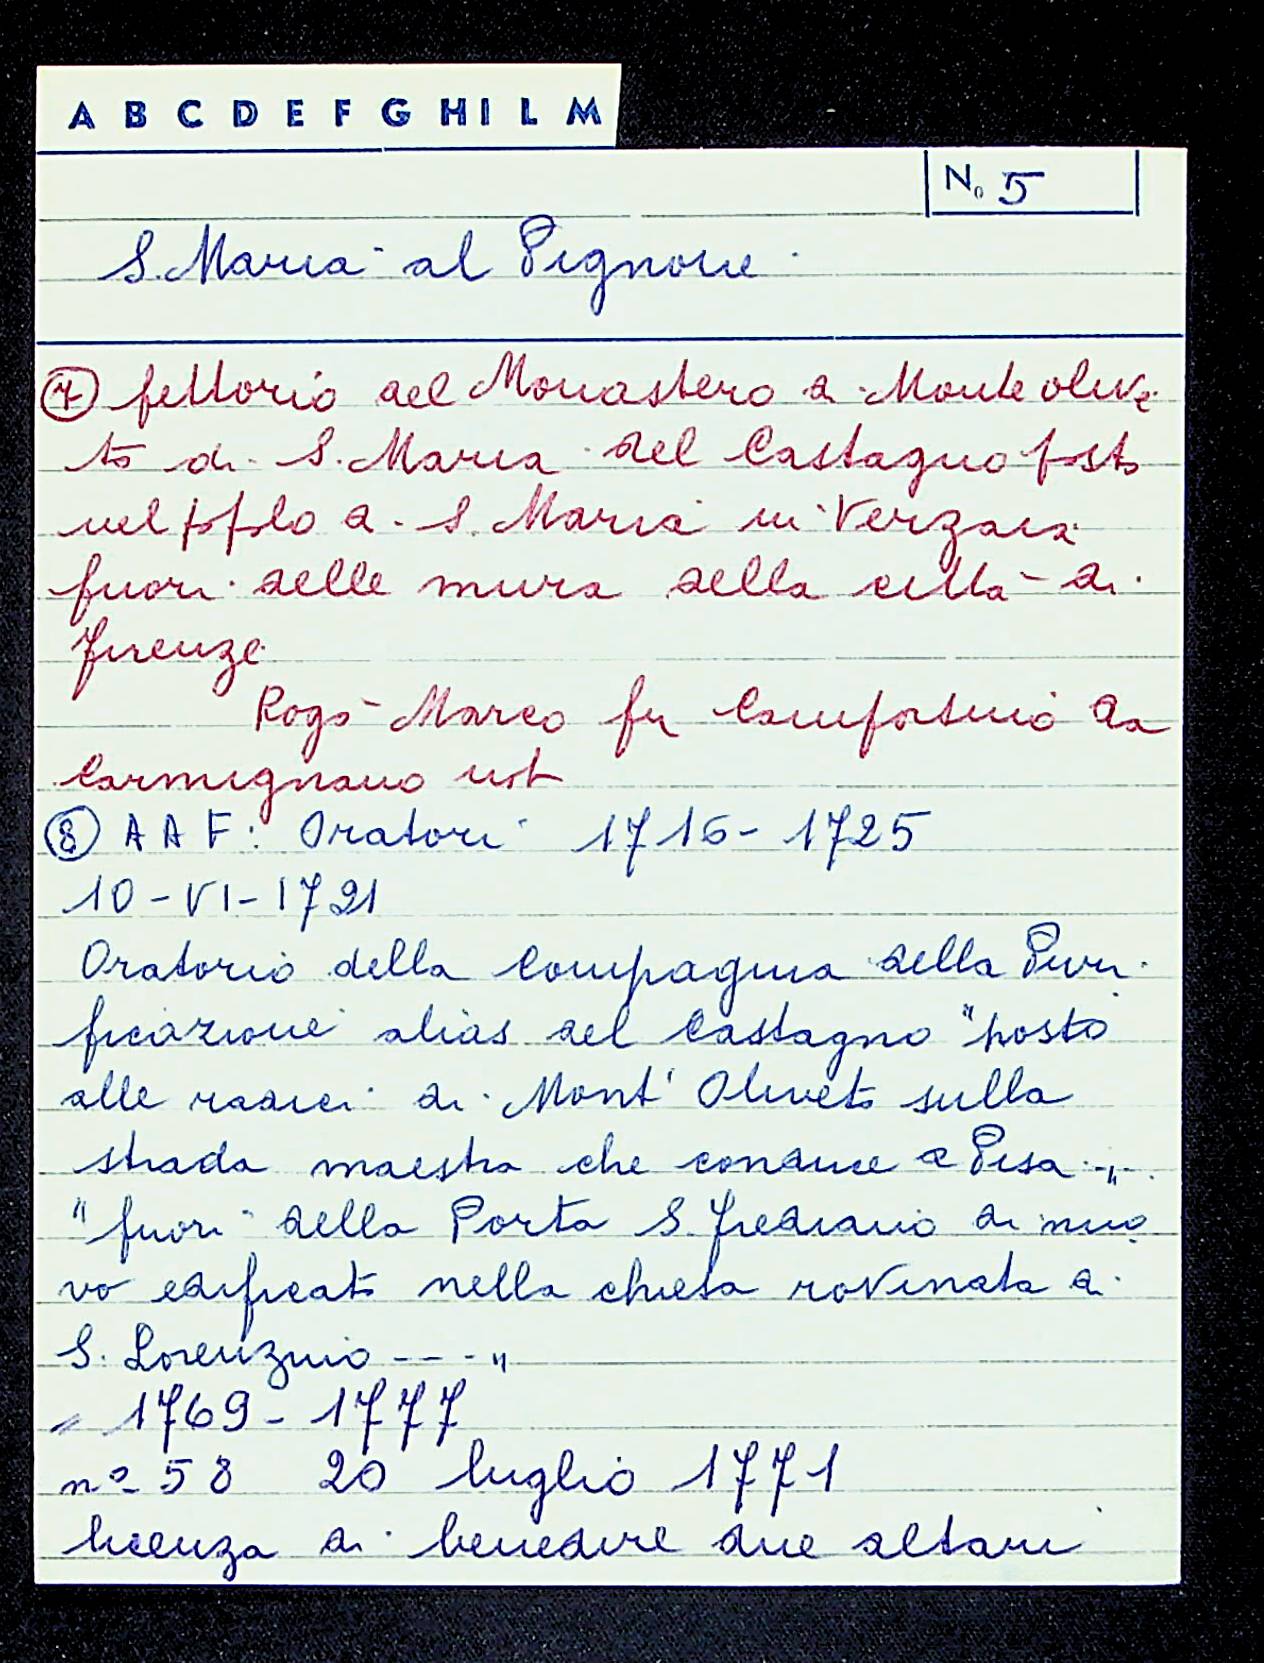 A B C D E F G H I L M
N. 5
S. Maria al Pignone
⑦ fettorio del Monastero di Monte olive
to di S. Maria del Castagno posto
nel popolo di S. Maria in Verzaia
fuori delle mura della città di
firenze
Rogò Marco fu Comfortino da
Carmignano not
⑧ A A F: Oratori 1716-1725
10-VI-1721
Oratorio della Compagnia della Puri
ficazione alias del Castagno "posto
alle radici di Mont' Oliveto sulla
strada maestra che conduce a Pisa .."
"fuori della Porta S. frediano di nuo
vo edificato nella chiesa rovinata di
S. Lorenzino ---"
" 1769-1777
nº 58 20 luglio 1771
licenza di benedire due altari